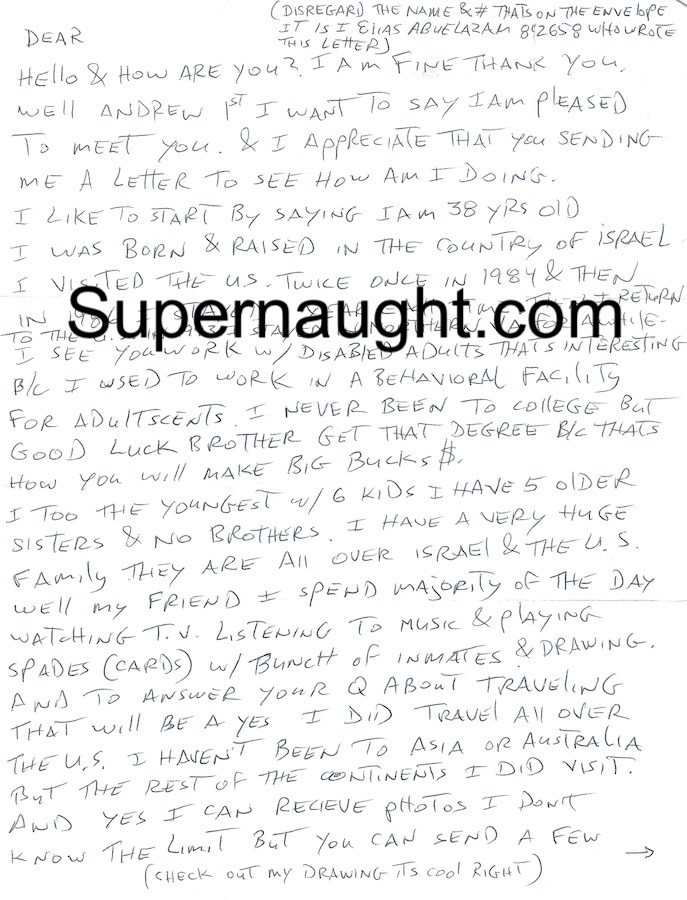 (DISREGARD THE NAME & # THATS ON THE ENVELOPE
IT IS I ELIAS ABUELAZAM 892658 WHO WROTE
THIS LETTER)
DEAR
HELLO & HOW ARE YOU? I AM FINE THANK YOU.
WELL ANDREW 1ST I WANT TO SAY I AM PLEASED
TO MEET YOU. & I APPRECIATE THAT YOU SENDING
ME A LETTER TO SEE HOW AM I DOING.
I LIKE TO START BY SAYING I AM 38 YRS OLD
I WAS BORN & RAISED IN THE COUNTRY OF ISRAEL
I VISITED THE U.S. TWICE ONCE IN 1984 & THEN
IN RETURN
Supernaught.com
TO THE
I SEE YOU WORK W/ DISABLED ADULTS THATS INTERESTING
B/C I USED TO WORK IN A BEHAVIORAL FACILITY
FOR ADULTSCENTS. I NEVER BEEN TO COLLEGE BUT
GOOD LUCK BROTHER GET THAT DEGREE B/C THATS
HOW YOU WILL MAKE BIG BUCKS $.
I TOO THE YOUNGEST W/ 6 KIDS I HAVE 5 OLDER
SISTERS & NO BROTHERS. I HAVE A VERY HUGE
FAMILY THEY ARE ALL OVER ISRAEL & THE U.S.
WELL MY FRIEND I SPEND MAJORITY OF THE DAY
WATCHING T.V. LISTENING TO MUSIC & PLAYING
SPADES (CARDS) W/ BUNCH OF INMATES & DRAWING.
AND TO ANSWER YOUR Q ABOUT TRAVELING
THAT WILL BE A YES I DID TRAVEL ALL OVER
THE U.S. I HAVEN'T BEEN TO ASIA OR AUSTRALIA
BUT THE REST OF THE CONTINENTS I DID VISIT.
AND YES I CAN RECIEVE PHOTOS I DON'T
KNOW THE LIMIT BUT YOU CAN SEND A FEW →
(CHECK OUT MY DRAWING ITS COOL RIGHT)